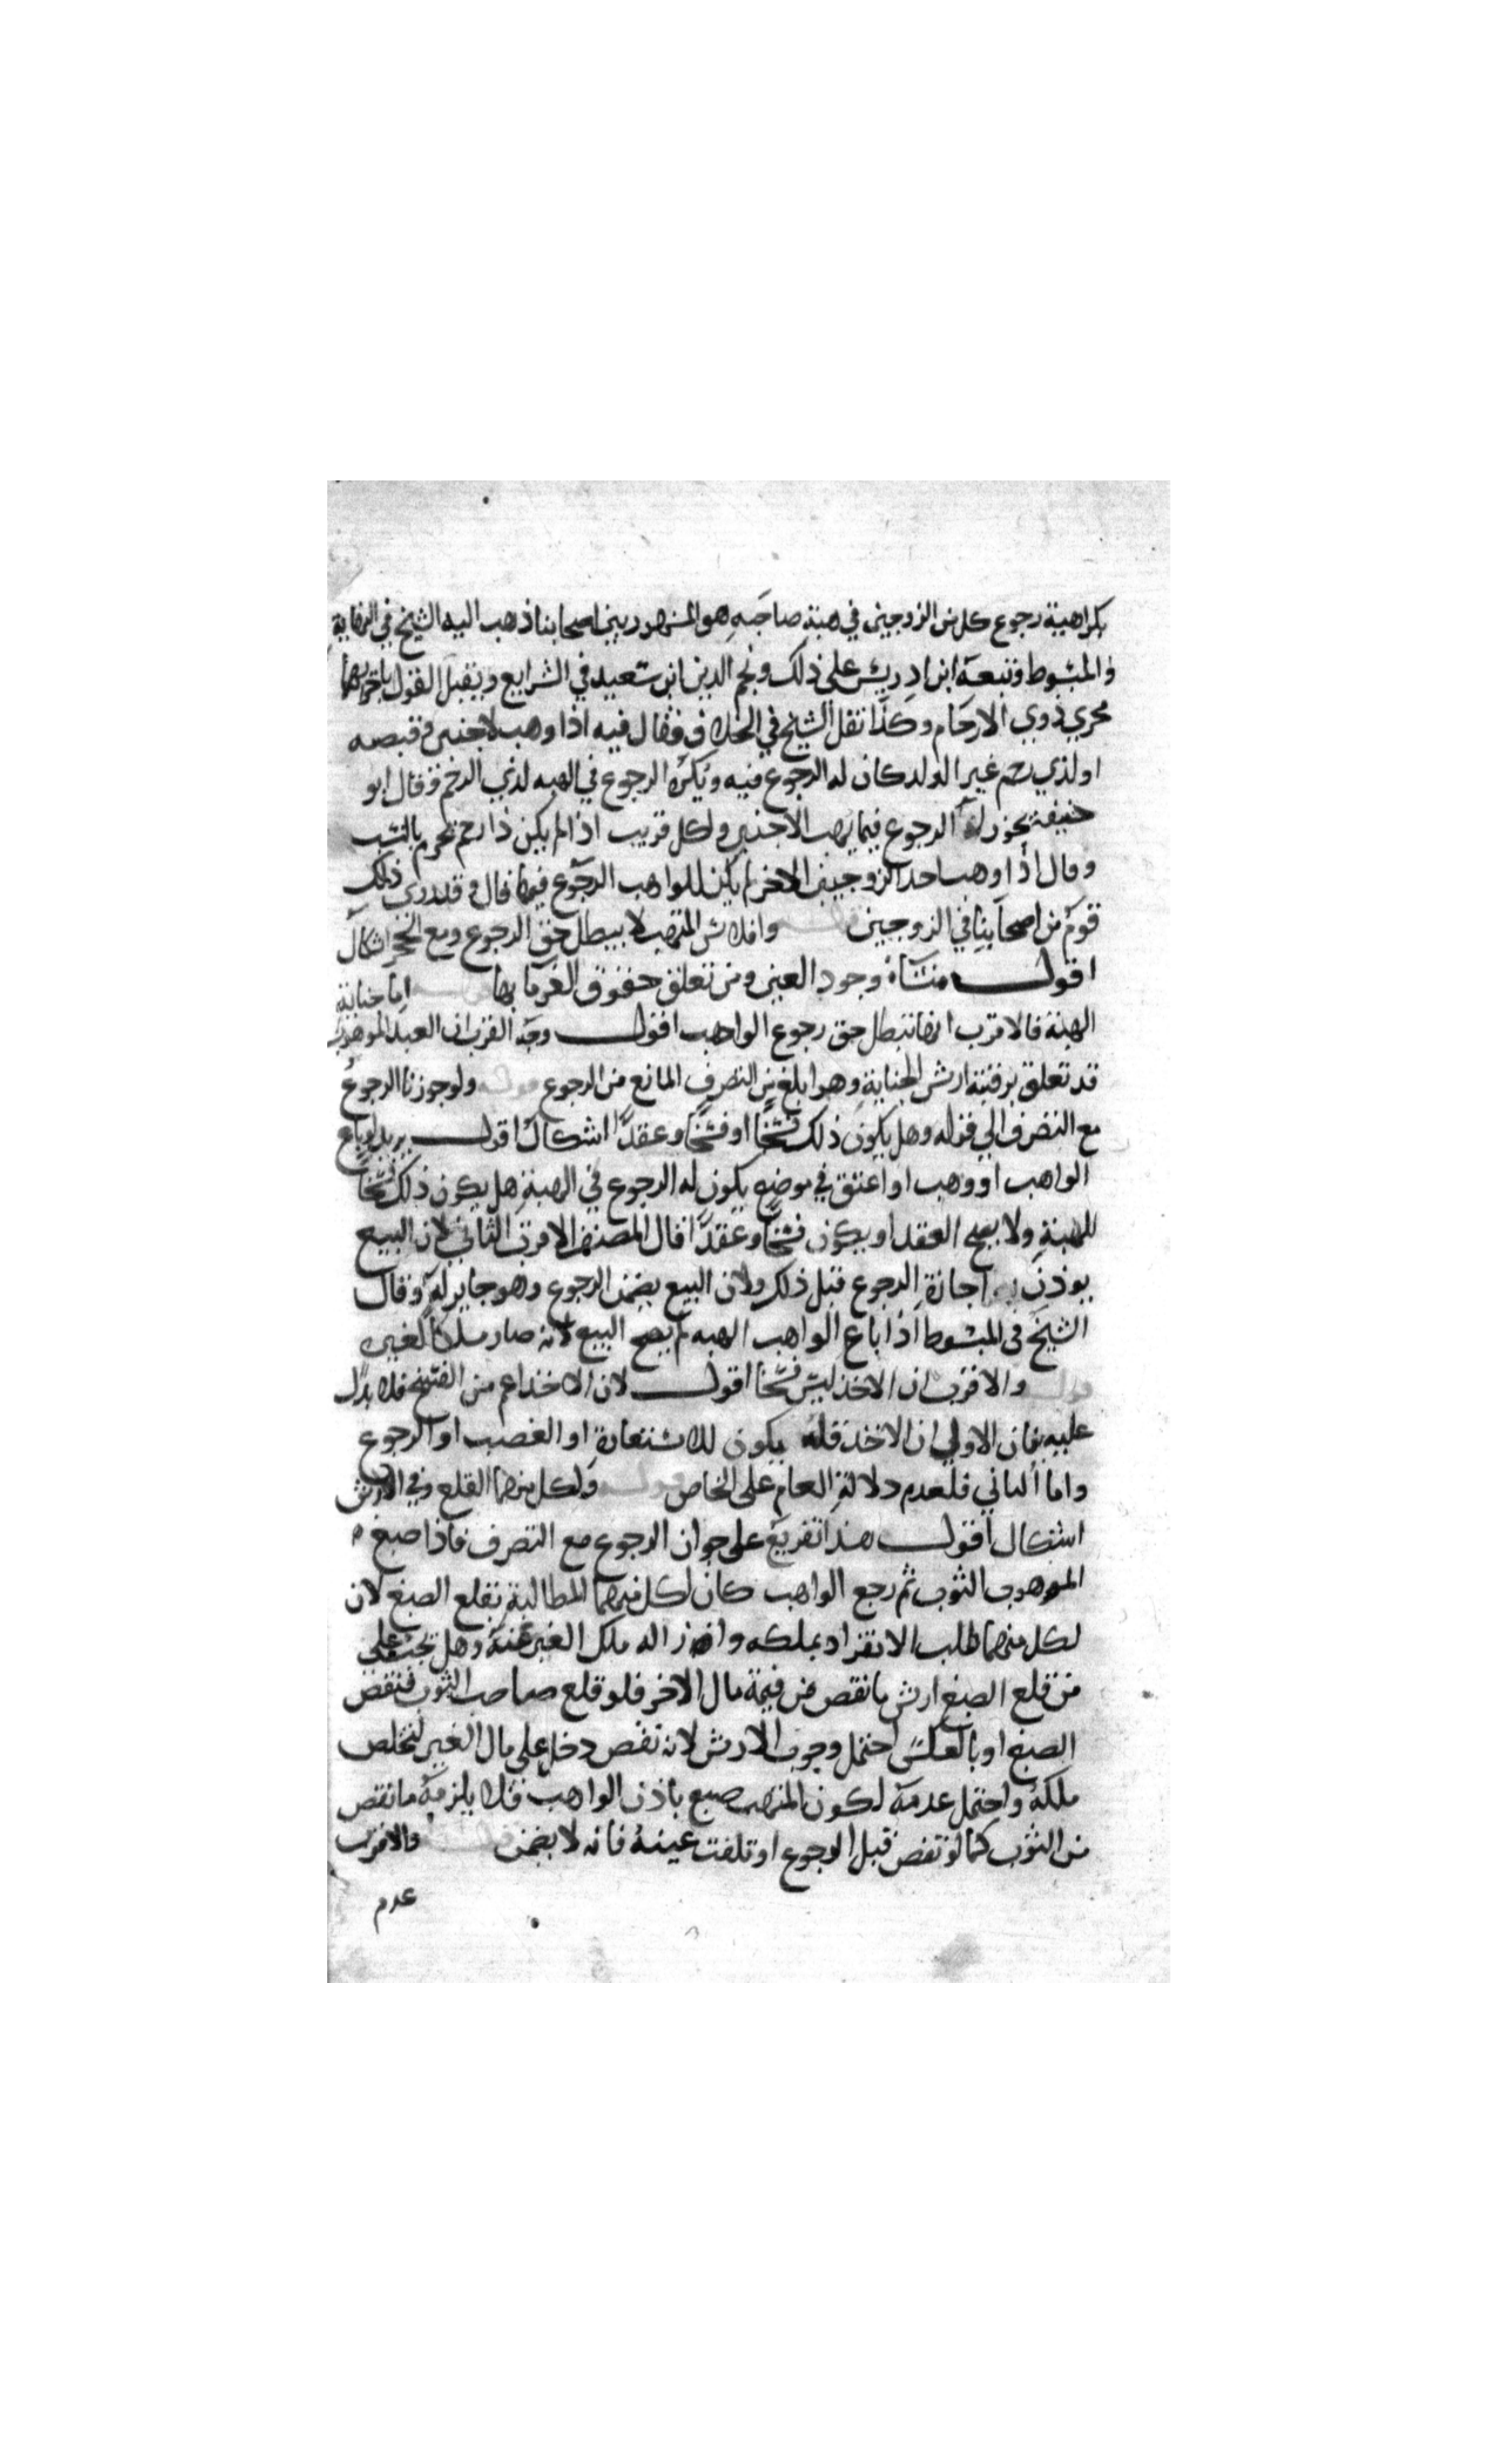 بكراهية رجوع كل من الزوجين في هبة صاحبه هو المشهور بين اصحابنا ذهب اليه الشيخ في النهاية
والمبسوط وتبعه ابن ادريس على ذلك ونجم الدين ابن سعيد في الشرايع وتقبل القول باجرايهما
مجري ذوي الارحام وكذا نقل الشيخ في الخلاف فقال فيه اذا وهب لاجنبي وقبضه
او لذي رحم غير الولد كان له الرجوع فيه ويكره الرجوع في الهبه لذي الرحم وقال ابو
حنيفة يجوز له الرجوع فيما يهب الاجنبي ولكل قريب اذا لم يكن ذا رحم محرم بالنسب
وقال اذا وهب احد الزوجين الاخر لم يكن للواهب الرجوع فيها قال وقد روى ذلك
قوم من اصحابنا في الزوجين قوله وافلاس المتهب لا يبطل حق الرجوع ومع الحجر اشكال
اقول منشاه وجود العين ومن تعلق حقوق الغرما بها قوله اما جناية
الهبة فالاقرب انها تبطل حق رجوع الواهب اقول وجه القرب ان العبد الموهوب
قد تعلق برقبته ارش الجناية وهو ابلغ من التصرف المانع من الرجوع قوله ولو جوزنا الرجوع
مع التصرف الي قوله وهل يكون ذلك فسخا او فسخا وعقدا اشكال اقول يريد لو باع
الواهب او وهب او اعتق في موضع يكون له الرجوع في الهبة هل يكون ذلك فسخا
للهبة ولا يصح العقد او يكون فسخا وعقدا قال المصنف الاقرب الثاني لان البيع
يوذن اجازة الرجوع قبل ذلك ولان البيع يضمن الرجوع وهو جايز له وقال
الشيخ في المبسوط اذا باع الواهب الهبه لم يصح البيع لانه صار ملكا لغيره
قوله والاقرب ان الاخذ ليس فسخا اقول لان الاخذ اعم من الفسخ فلا يدل
عليه بيان الاولي ان الاخذ قد يكون للاستعارة او الغصب او الرجوع
واما الثاني فلعدم دلالة العام على الخاص قوله ولكل منهما القلع وفي الارش
اشكال اقول هذا تفريع على جواز الرجوع مع التصرف فاذا صبغ
الموهوب الثوب ثم رجع الواهب كان لكل منهما المطالبة بقلع الصبغ لان
لكل منهما طلب الانفراد بملكه وازاله ملك الغير عنه وهل يجب على
من قلع الصبغ ارش ما نقص من قيمة مال الاخر فلو قلع صاحب الثوب فنقص
الصبغ او بالعكس احتمل وجوب الارش لانه نقص دخل على مال الغير لتخلص
ملكه واحتمل عدمه لكون المتهب صبغ باذن الواهب فلا يلزمه ما نقص
من الثوب كما لو نقص قبل الرجوع او تلفت عينه فانه لا يضمن قوله والاقرب
عدم